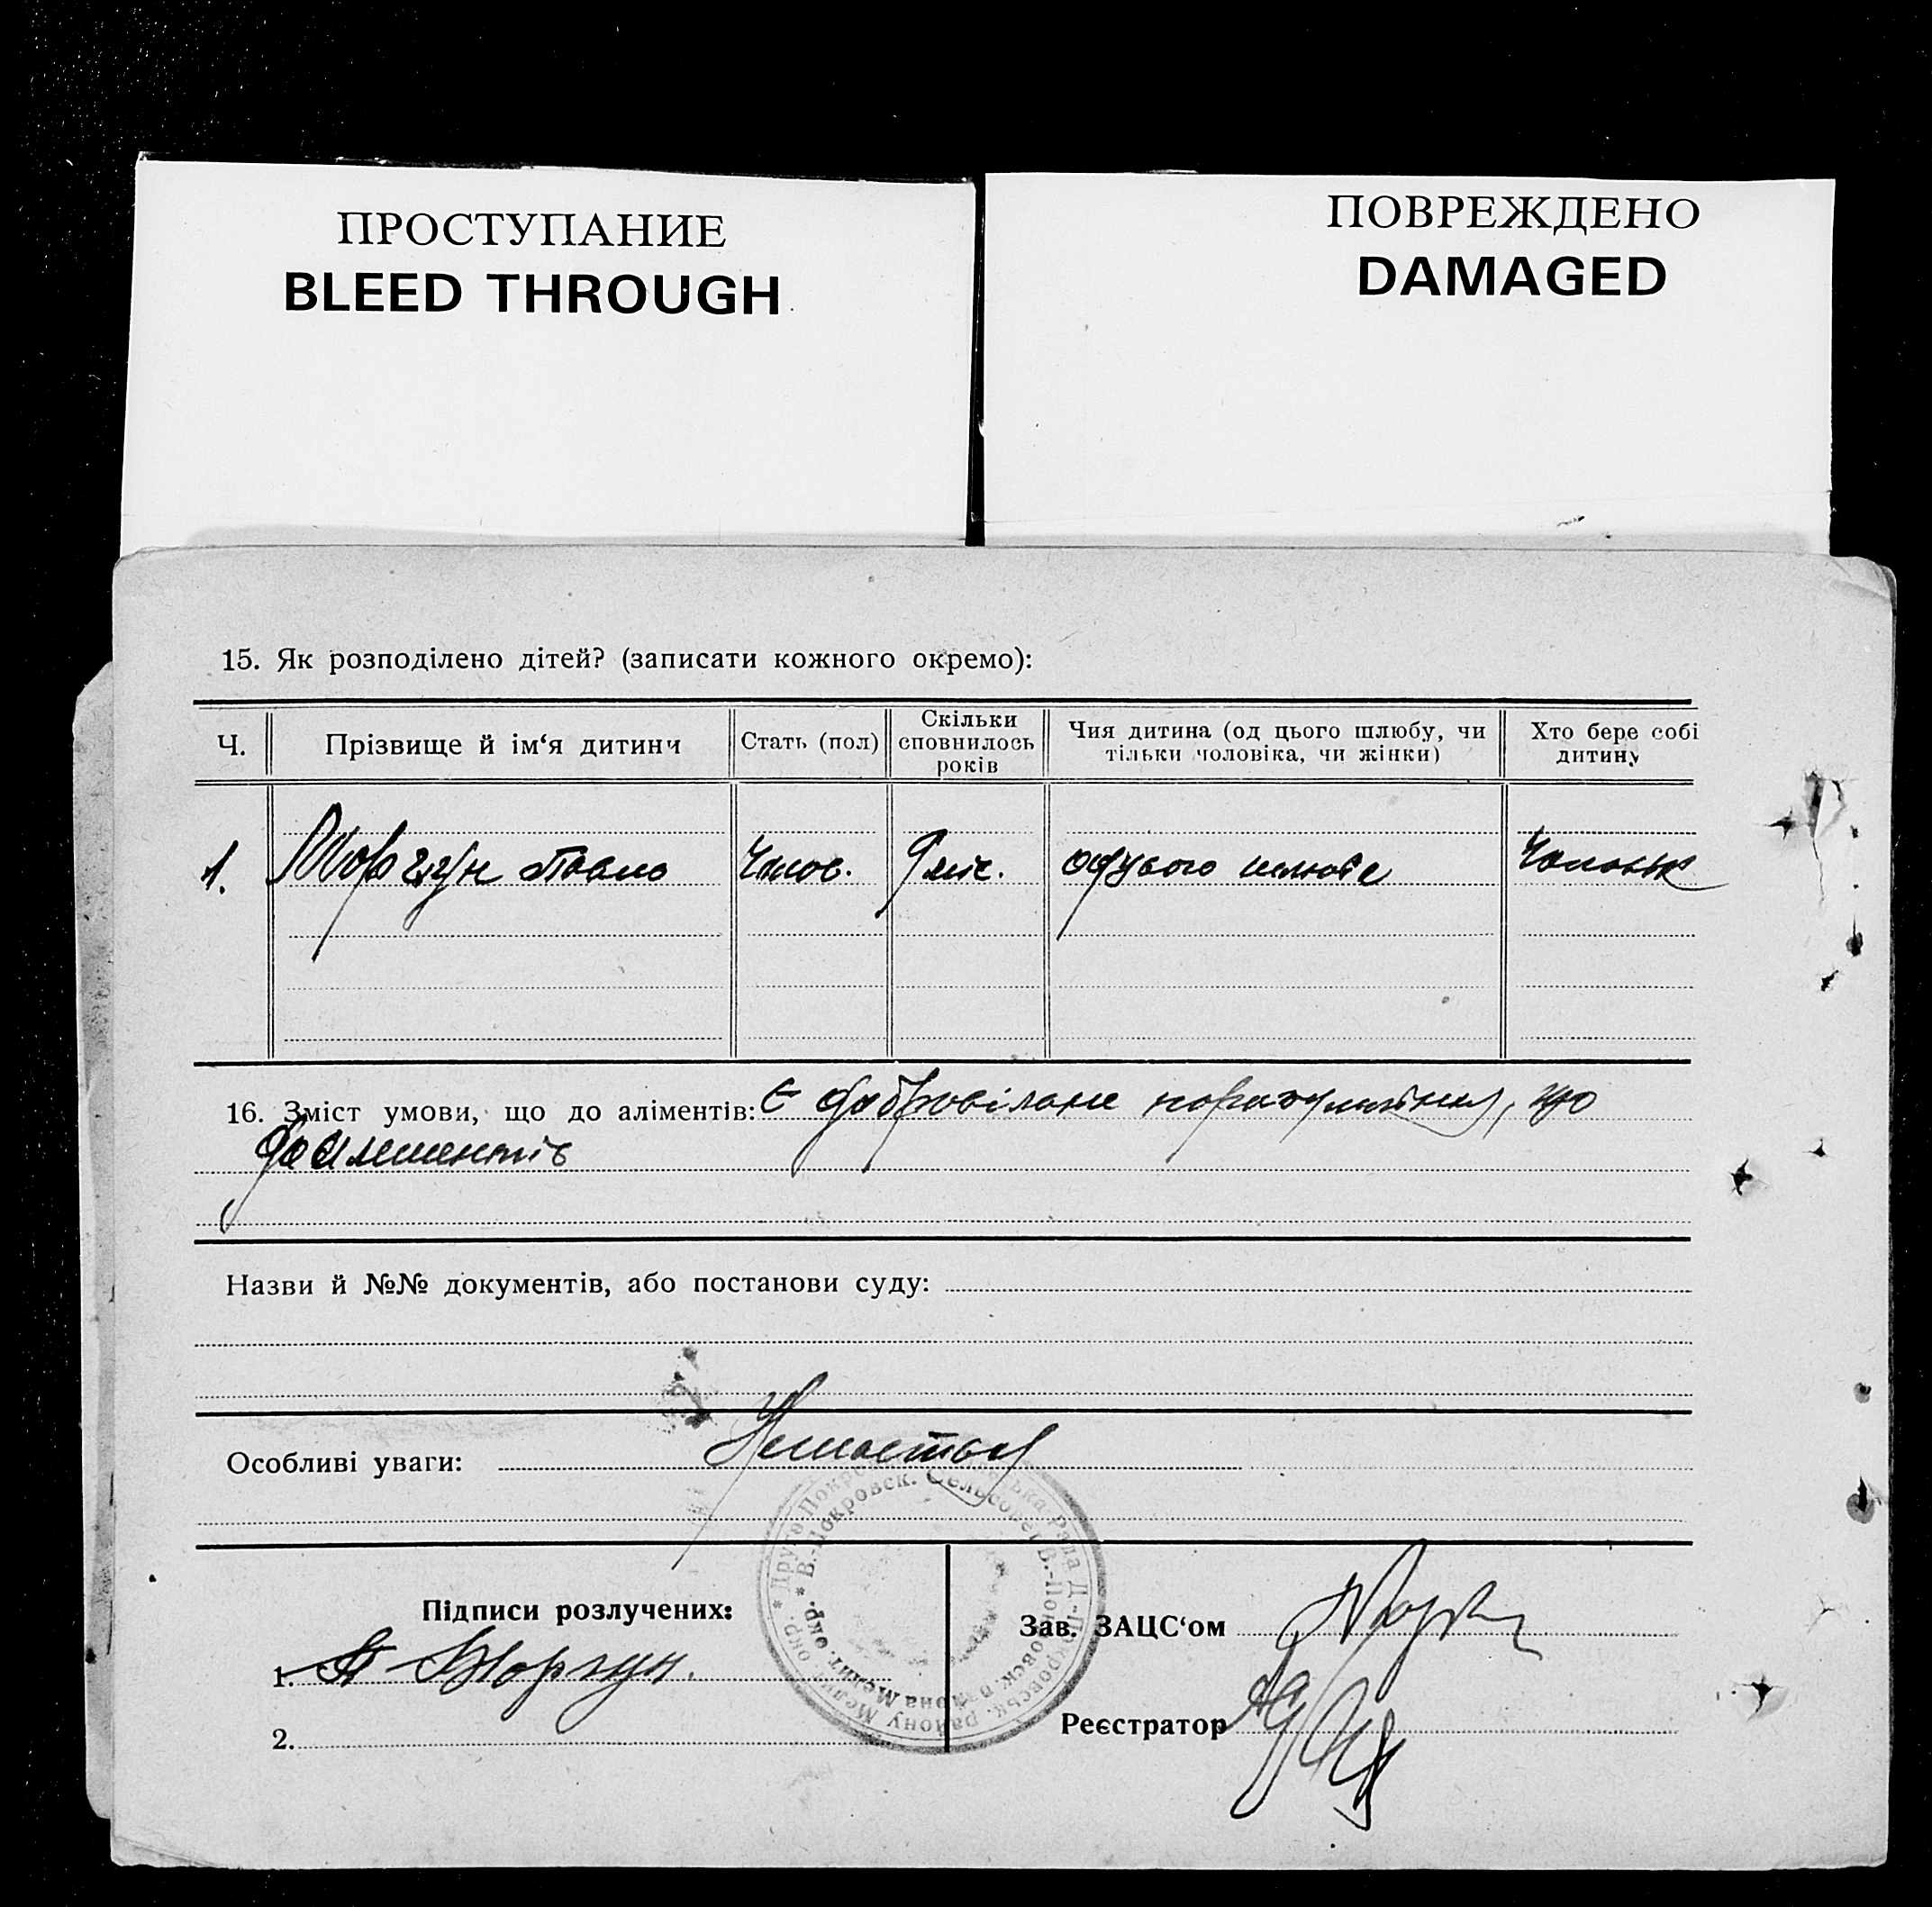 ПРОСТУПАНИЕ
BLEED THROUGH
ПОВРЕЖДЕНО
DAMAGED
15. Як розподілено дітей? (записати кожного окремо):
Ч.
Прізвище й ім‘я дитини
Стать (пол)
Скільки
сповнилось
років
Чия дитина (од цього шлюбу, чи
тільки чоловіка, чи жінки)
Хто бере собі
дитину
1.
Моргун Павло
Чолов.
9 міс.
од цього шлюбе
Чоловік
16. Зміст умови, що до аліментів: Є добровільне, що
до алементів
Назви й №№ документів, або постанови суду:
Особливі уваги:
Підписи розлучених:
1. Моргун.
2.
Зав. ЗАЦС‘ом
Реєстратор